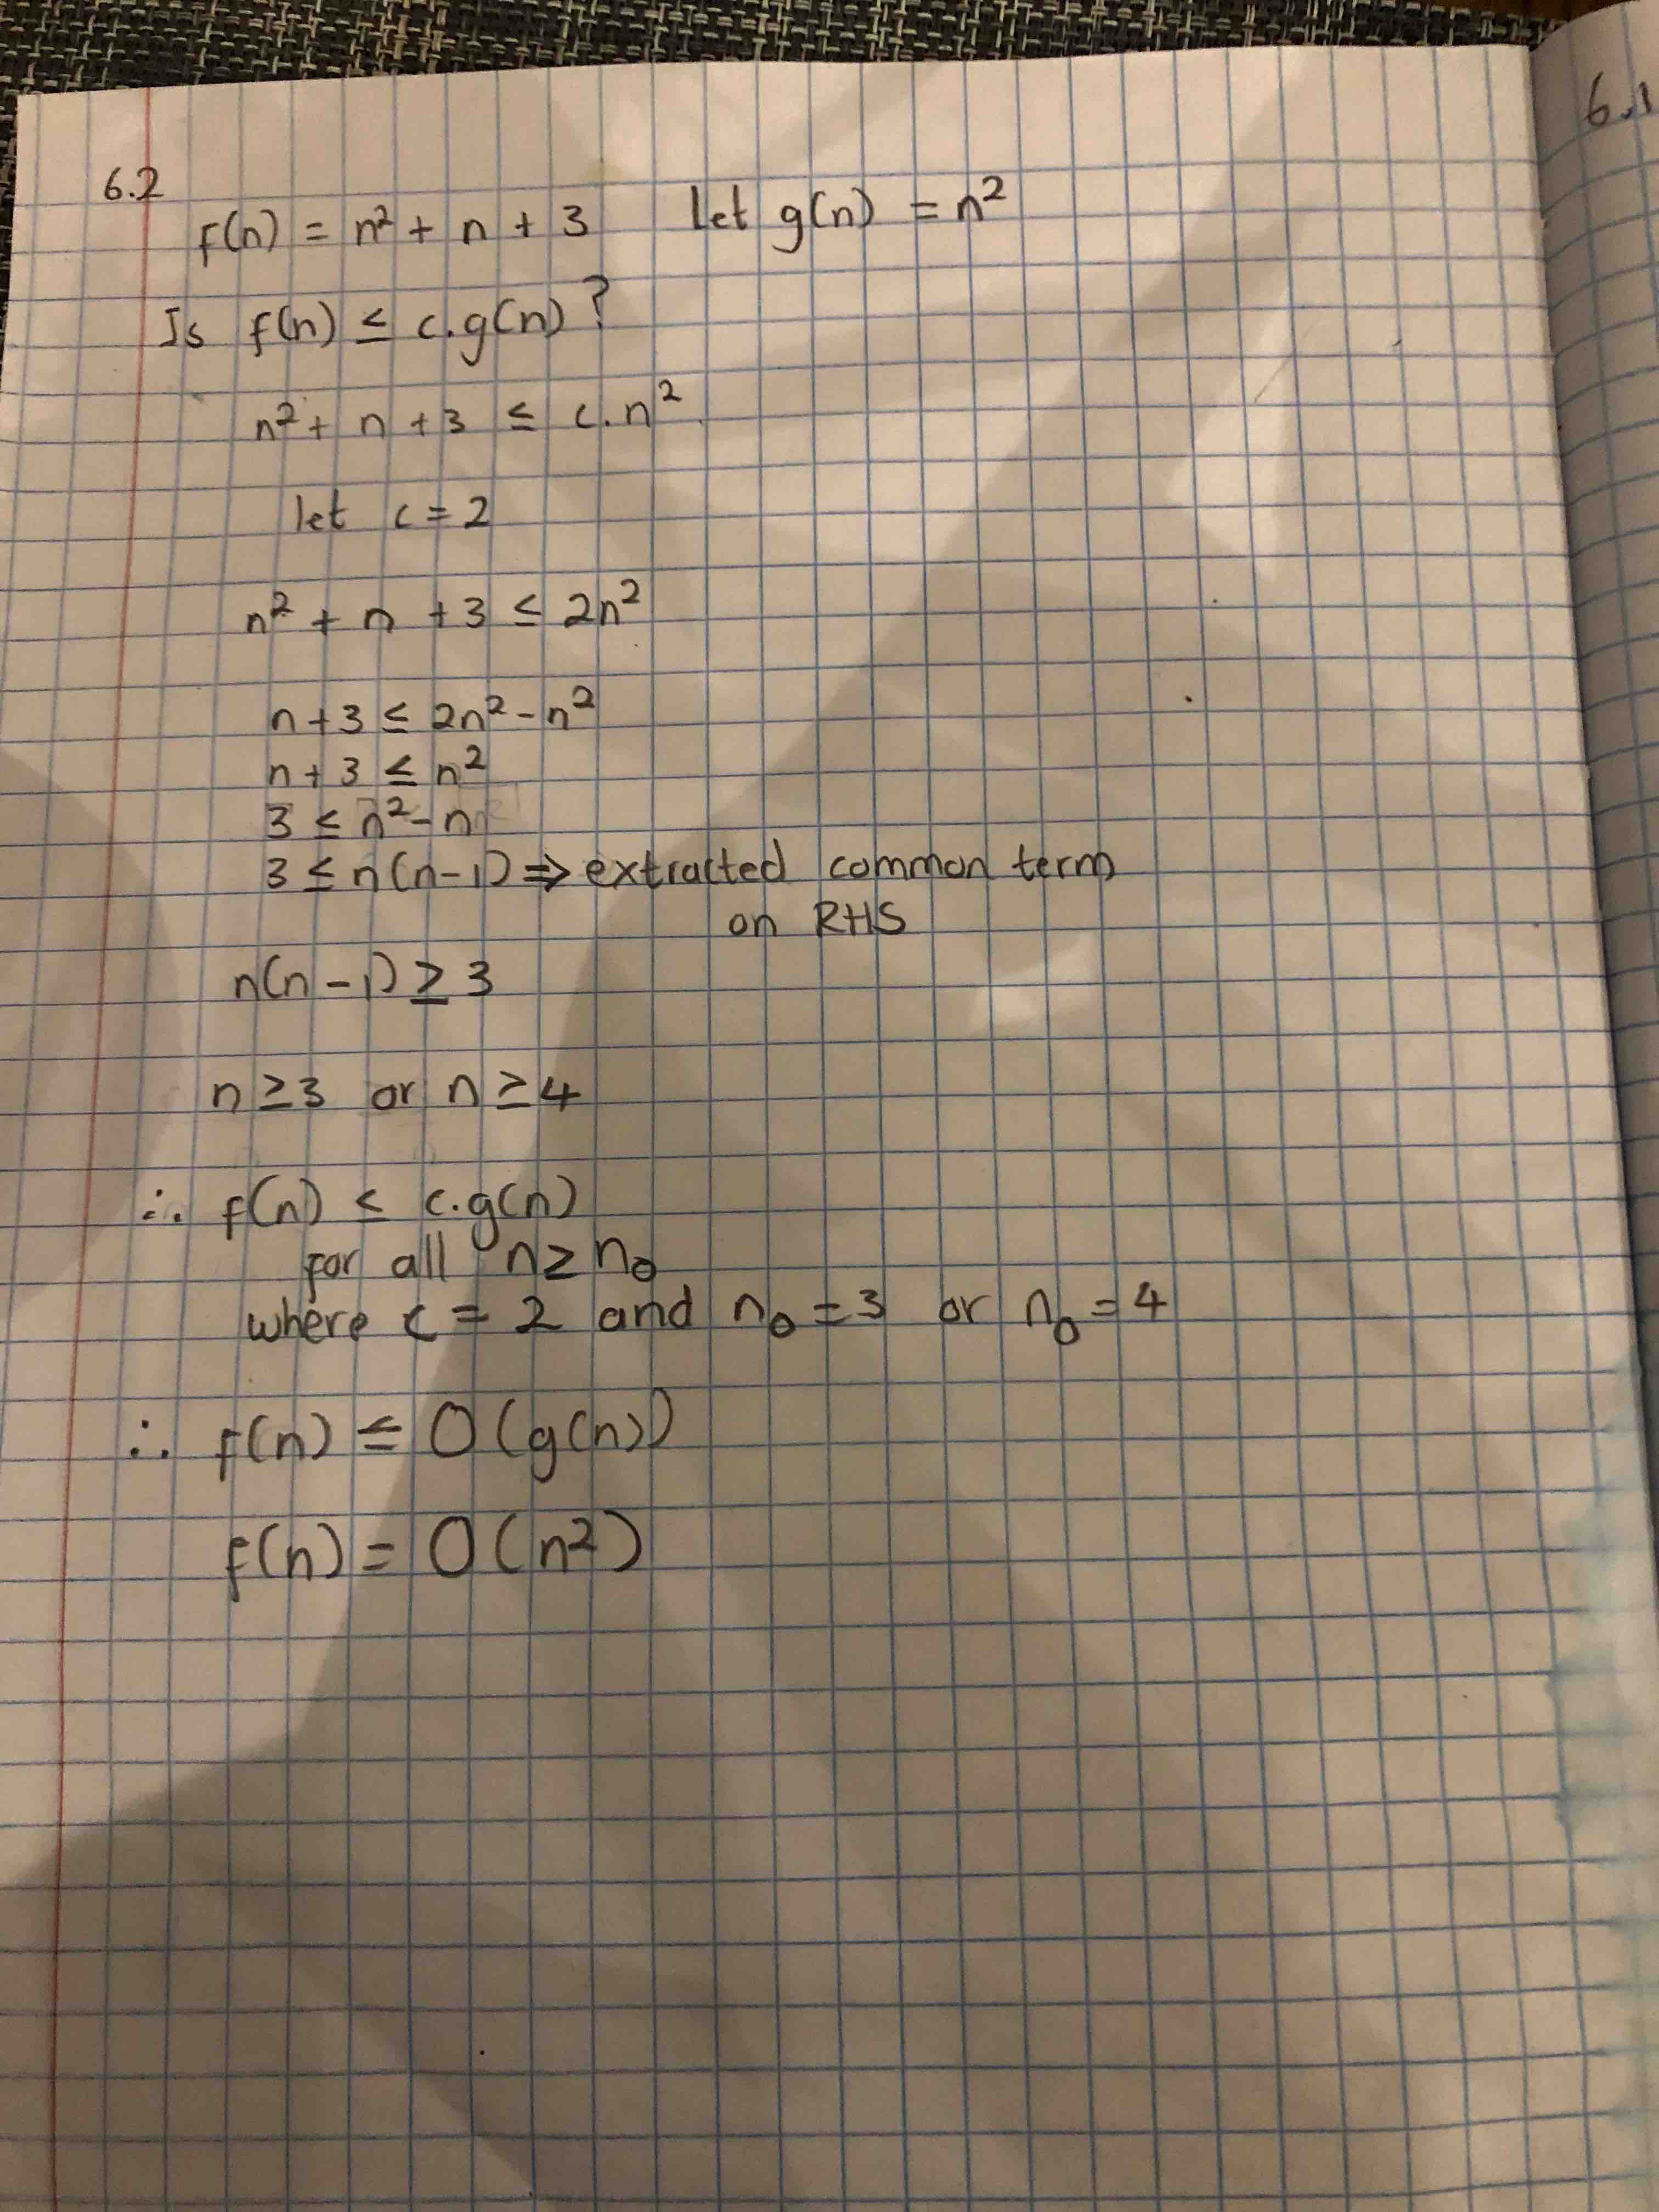 6.1
6.2
f(n) = n² + n + 3 let g(n) = n²
Is f(n) ≤ c.g(n)?
n² + n + 3 ≤ c.n²
let c = 2
n² + n + 3 ≤ 2n²
n + 3 ≤ 2n² - n²
n + 3 ≤ n²
3 ≤ n² - n
3 ≤ n(n-1) ⇒ extracted common term
on RHS
n(n-1) ≥ 3
n ≥ 3 or n ≥ 4
∴ f(n) ≤ c.g(n)
for all n ≥ n₀
where c = 2 and n₀ = 3 or n₀ = 4
∴ f(n) ≤ O(g(n))
f(n) = O(n²)